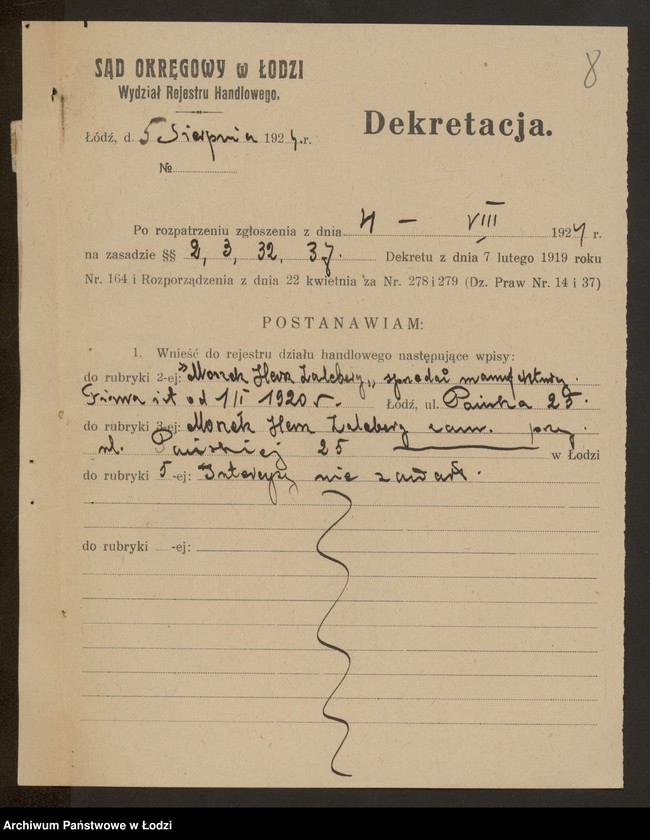 8
SĄD OKRĘGOWY w ŁODZI
Wydział Rejestru Handlowego.
Dekretacja.
Łódź, d. 5 Sierpnia 1924 r.
№
Po rozpatrzeniu zgłoszenia z dnia 4 — VIII 1924 r.
na zasadzie §§ 2, 3, 32, 37. Dekretu z dnia 7 lutego 1919 roku
Nr. 164 i Rozporządzenia z dnia 22 kwietnia za Nr. 278 i 279 (Dz. Praw Nr. 14 i 37)
POSTANAWIAM:
1. Wnieść do rejestru działu handlowego następujące wpisy:
do rubryki 2-ej: "Moszek Hersz Zalcberg„ sprzedaż manufaktury.
Firma ist od 1/I 1920 r. Łódź, ul. Pańska 25.
do rubryki 3-ej: Moszek Hersz Zalcberg zam. przy
ul. Pańskiej 25 w Łodzi
do rubryki 5-ej: Intercyzy nie zawarł.
do rubryki -ej:
Archiwum Państwowe w Łodzi